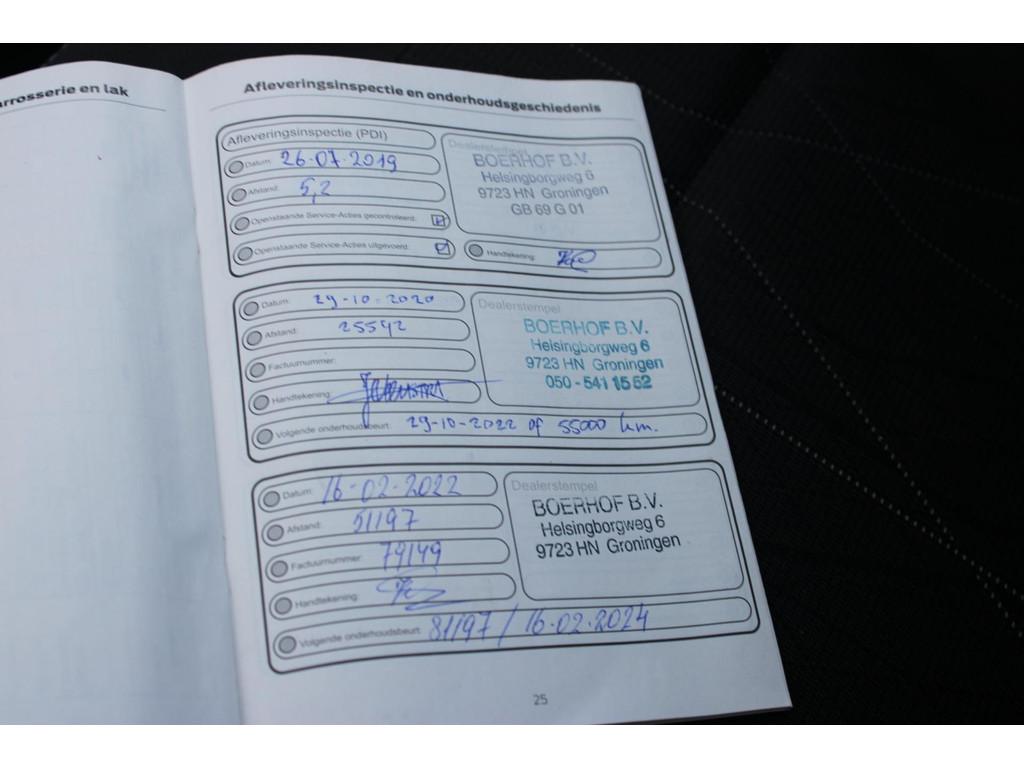 arrosserie en lak
Afleveringsinspectie en onderhoudsgeschiedenis
Afleveringsinspectie (PDI)
Datum: 26-07-2019
Afstand: 5,2
Openstaande Service-Acties gecontroleerd:
Openstaande Service-Acties uitgevoerd:
Dealerstempel
BOERHOF B.V.
Helsingborgweg 6
9723 HN Groningen
GB 69 G 01
Handtekening:
Datum: 29-10-2020
Afstand: 25542
Factuurnummer:
Handtekening:
Volgende onderhoudsbeurt: 29-10-2022 of 55000 km.
Dealerstempel
BOERHOF B.V.
Helsingborgweg 6
9723 HN Groningen
050 - 541 15 52
Datum: 16-02-2022
Afstand: 51197
Factuurnummer: 79149
Handtekening:
Volgende onderhoudsbeurt: 81197 / 16-02-2024
Dealerstempel
BOERHOF B.V.
Helsingborgweg 6
9723 HN Groningen
25